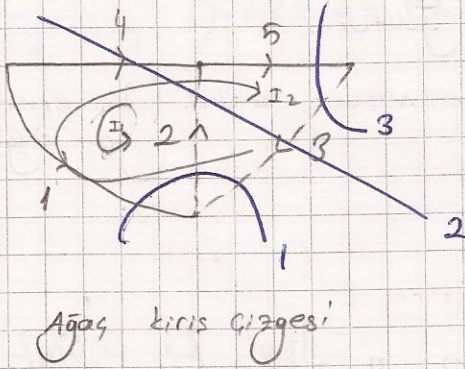 4 5
I₂
I 2 3 3
1
2
1
Ağaç kiriş çizgesi